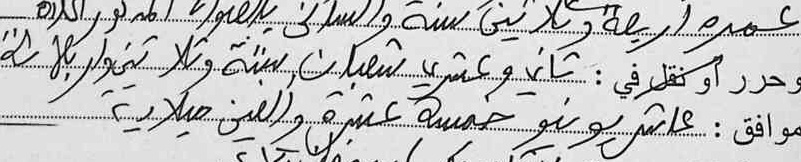 عمره اربعة وثلاثين سنة والساكن بالعنوان المذكور اعلاه
وحرر أو نقل في : ثاني وعشري شعبان سنة وثلاثين واربعمائة
موافق : عاشر يونيو خمسة عشرة والفين ميلادية